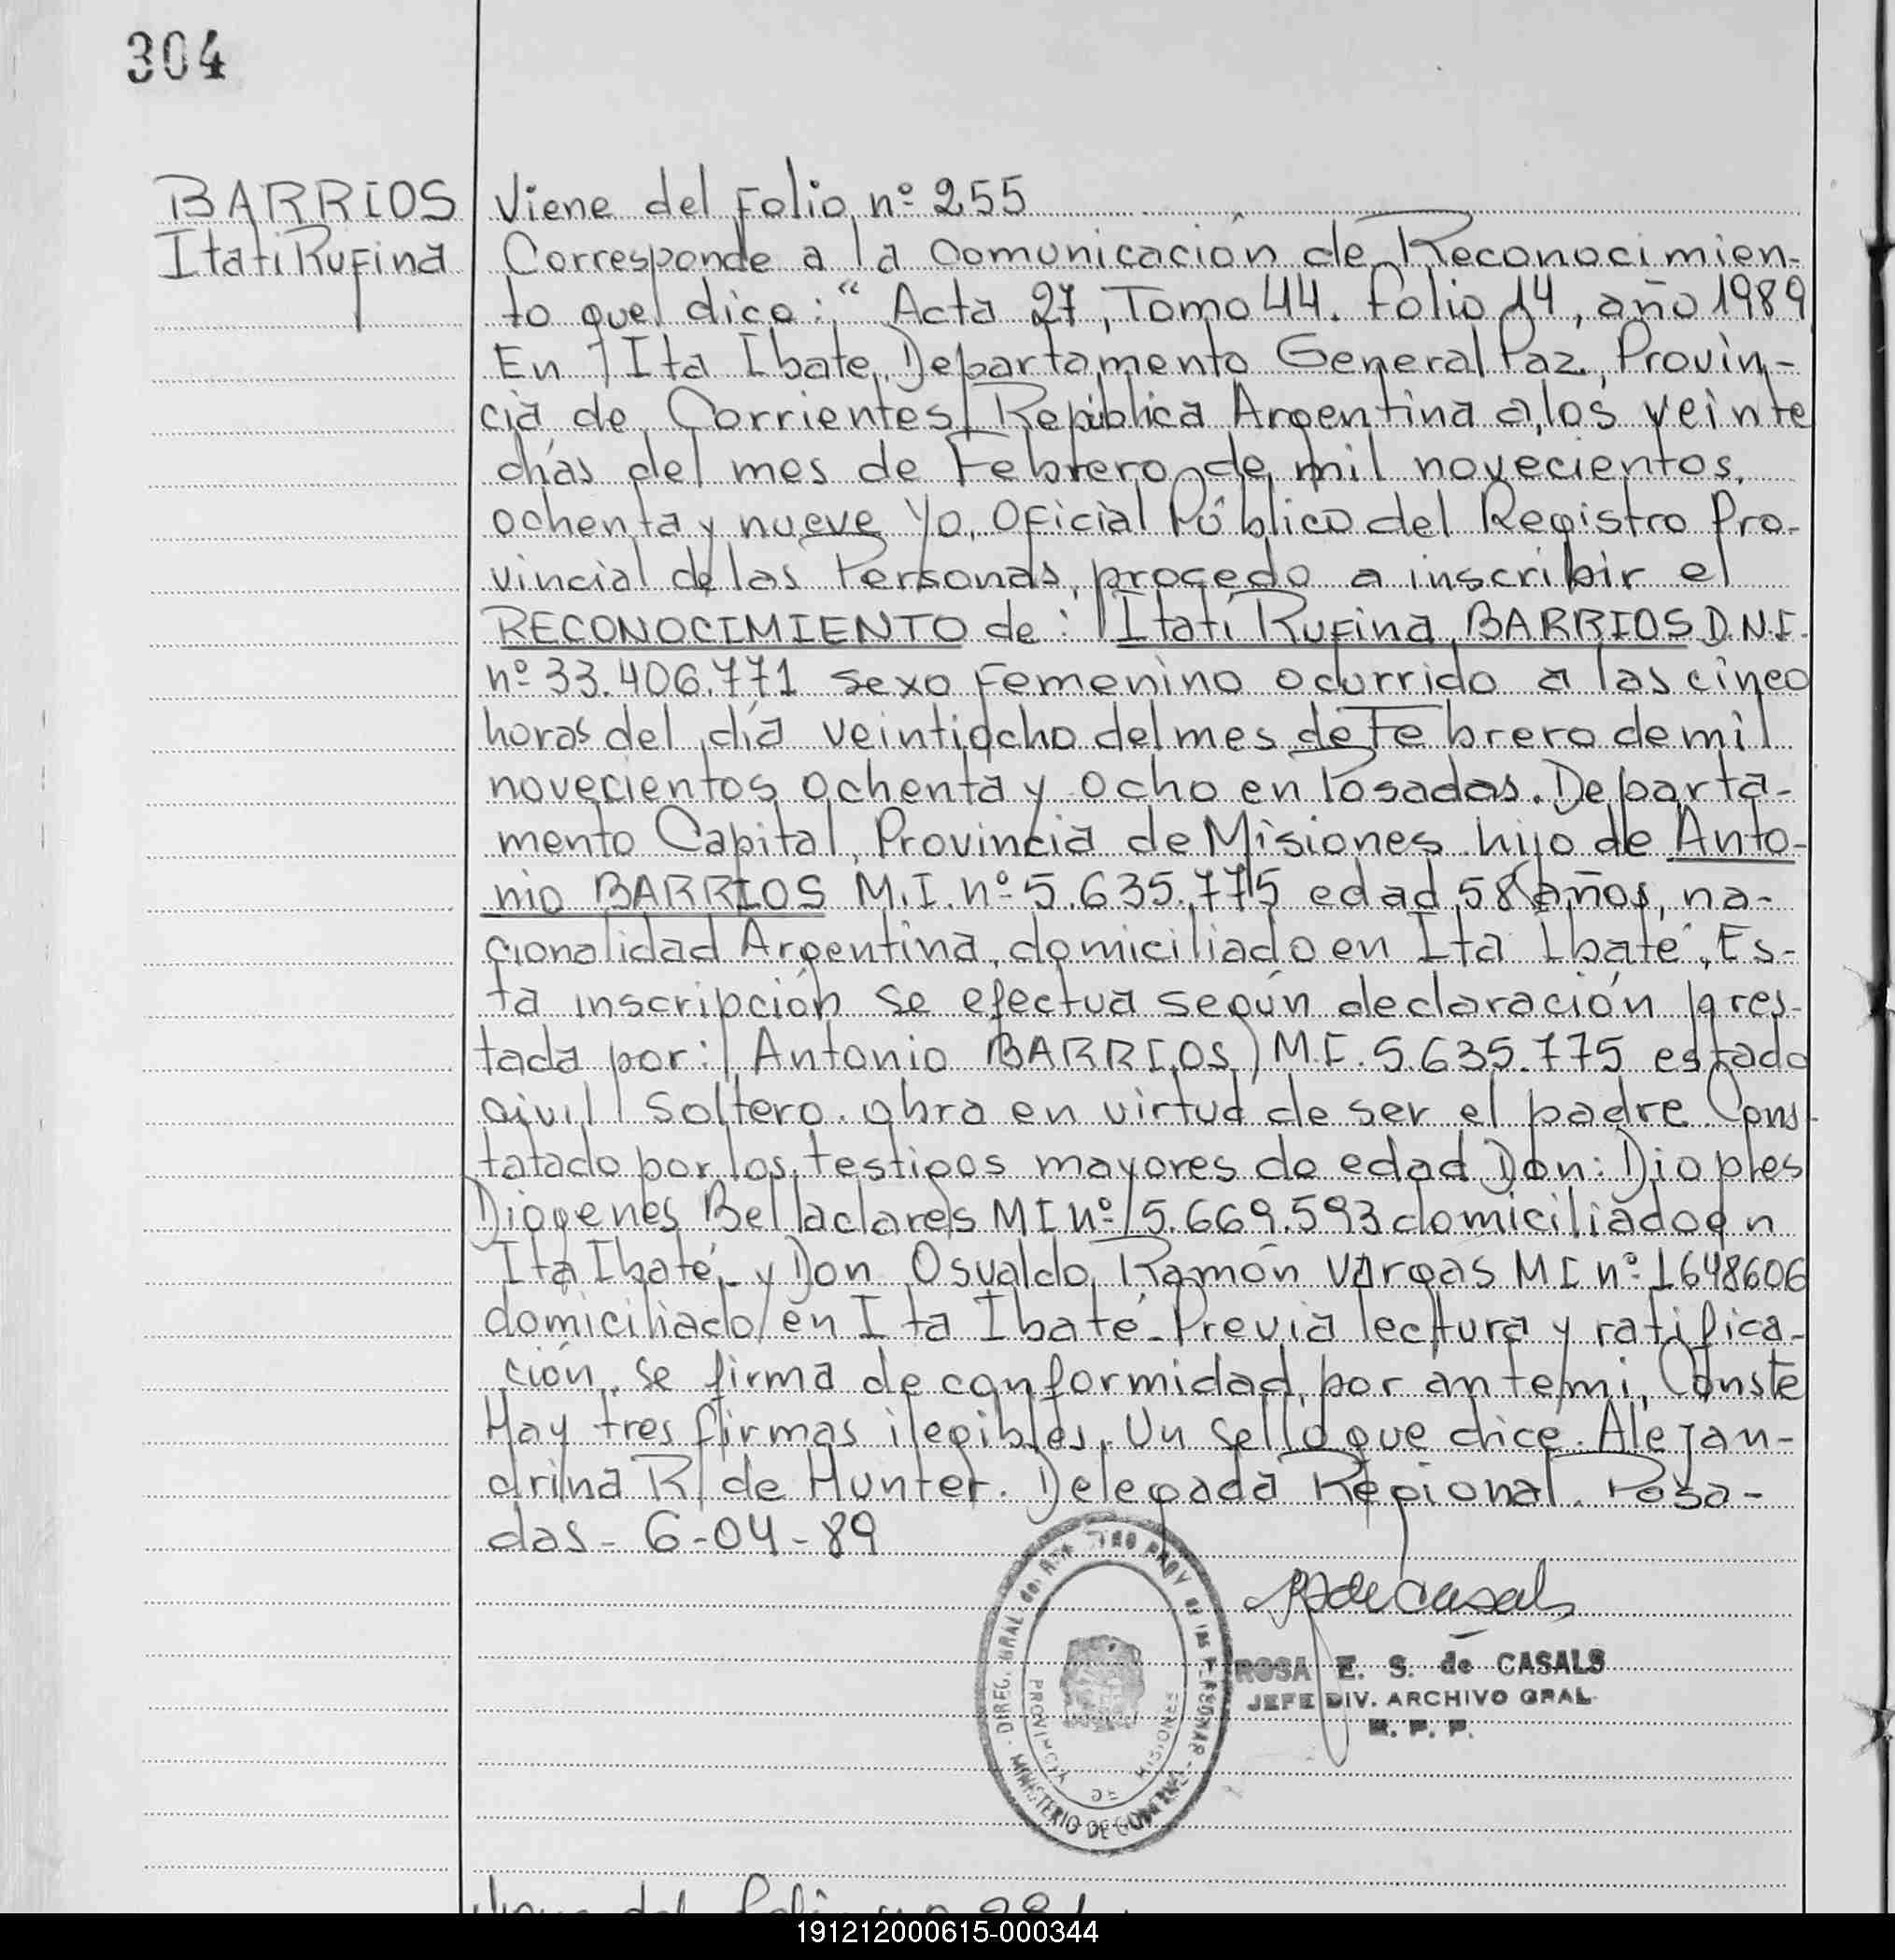 304
BARRIOS
Itati Rufina
Viene del folio nº 255
Corresponde a la comunicación de Reconocimien-
to que dice: “ Acta 27, Tomo 44. folio 14, año 1989
En Ita Ibate, Departamento General Paz, Provin-
cia de Corrientes República Argentina a los veinte
días del mes de Febrero de mil novecientos
ochenta y nueve yo, Oficial Público del Registro Pro-
vincial de las Personas, procedo a inscribir el
RECONOCIMIENTO de: Itatí Rufina BARRIOS D.N.I.
nº 33.406.771 sexo femenino ocurrido a las cinco
horas del día veintiocho del mes de Febrero de mil
novecientos ochenta y ocho en Posadas. Departa-
mento Capital, Provincia de Misiones hijo de Anto-
nio BARRIOS M.I. nº 5.635.775 edad 58 años, na-
cionalidad Argentina, domiciliado en Ita Ibaté, Es-
ta inscripción se efectua según declaración pres-
tada por: Antonio BARRIOS) M.I. 5.635.775 estado
civil soltero. obra en virtud de ser el padre Cons-
tatado por los testigos mayores de edad Don:
Diogenes Belladares MI nº 5.669.593 domiciliado en
Ita Ibaté. y Don Osvaldo Ramón Vargas MI nº 1648606
domiciliado en Ita Ibaté. Previa lectura y ratifica-
ción, se firma de conformidad, por ante mi, Conste
Hay tres firmas ilegibles. Un sello que dice. Alejan-
drina R de Hunter. Delegada Regional. Posa-
das - 6-04-89
ROSA E. S. de CASALS
JEFE DIV. ARCHIVO GRAL.
R. P. P.
DIREC. GRAL del
MINISTERIO DE GOBIERNO
PROVINCIA DE MISIONES
191212000615-000344